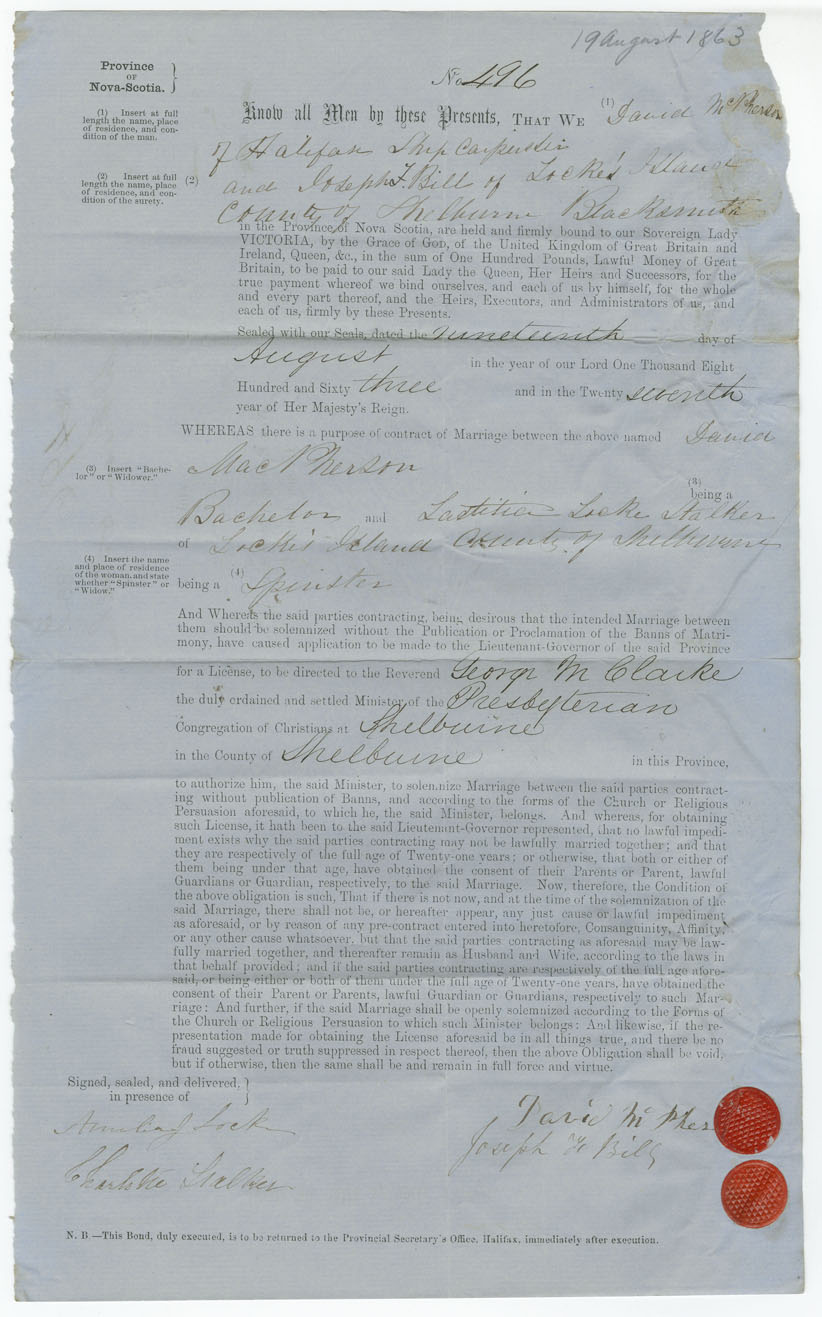 19 August 1863
Province
OF
Nova-Scotia.
No. 496
(1) Insert at full
length the name, place
of residence, and con-
dition of the man.
Know all Men by these Presents, THAT WE (1) David McPherson
of Halifax Ship Carpenter
(2) Insert at full
length the name, place
of residence, and con-
dition of the surety.
(2) and Joseph F. Bill of Locke's Island
County of Shelburne Blacksmith
in the Province of Nova Scotia, are held and firmly bound to our Sovereign Lady
VICTORIA, by the Grace of GOD, of the United Kingdom of Great Britain and
Ireland, Queen, &c., in the sum of One Hundred Pounds, Lawful Money of Great
Britain, to be paid to our said Lady the Queen, Her Heirs and Successors, for the
true payment whereof we bind ourselves, and each of us by himself, for the whole
and every part thereof, and the Heirs, Executors, and Administrators of us, and
each of us, firmly by these Presents.
Sealed with our Seals, dated the nineteenth day of
August in the year of our Lord One Thousand Eight
Hundred and Sixty three and in the Twenty seventh
year of Her Majesty's Reign.
WHEREAS there is a purpose of contract of Marriage between the above named David
(3) Insert "Bache-
lor" or "Widower."
MacPherson
(3)
being a
Bachelor and Laetitia Locke Stalker
of Locke's Island County of Shelburne
(4) Insert the name
and place of residence
of the woman, and state
whether "Spinster" or
"Widow."
being a (4) Spinster
And Whereas the said parties contracting, being desirous that the intended Marriage between
them should be solemnized without the Publication or Proclamation of the Banns of Matri-
mony, have caused application to be made to the Lieutenant-Governor of the said Province
for a License, to be directed to the Reverend George M Clarke
the duly ordained and settled Minister of the Presbyterian
Congregation of Christians at Shelburne
in the County of Shelburne in this Province,
to authorize him, the said Minister, to solemnize Marriage between the said parties contract-
ing without publication of Banns, and according to the forms of the Church or Religious
Persuasion aforesaid, to which he, the said Minister, belongs. And whereas, for obtaining
such License, it hath been to the said Lieutenant-Governor represented, that no lawful impedi-
ment exists why the said parties contracting may not be lawfully married together; and that
they are respectively of the full age of Twenty-one years; or otherwise, that both or either of
them being under that age, have obtained the consent of their Parents or Parent, lawful
Guardians or Guardian, respectively, to the said Marriage. Now, therefore, the Condition of
the above obligation is such, That if there is not now, and at the time of the solemnization of the
said Marriage, there shall not be, or hereafter appear, any just cause or lawful impediment
as aforesaid, or by reason of any pre-contract entered into heretofore, Consanguinity, Affinity,
or any other cause whatsoever, but that the said parties contracting as aforesaid may be law-
fully married together, and thereafter remain as Husband and Wife, according to the laws in
that behalf provided; and if the said parties contracting are respectively of the full age afore-
said, or being either or both of them under the full age of Twenty-one years, have obtained the
consent of their Parent or Parents, lawful Guardian or Guardians, respectively to such Mar-
riage: And further, if the said Marriage shall be openly solemnized according to the Forms of
the Church or Religious Persuasion to which such Minister belongs: And likewise, if the re-
presentation made for obtaining the License aforesaid be in all things true, and there be no
fraud suggested or truth suppressed in respect thereof, then the above Obligation shall be void,
but if otherwise, then the same shall be and remain in full force and virtue.
Signed, sealed, and delivered,
in presence of
David McPher
Locke
Joseph F Bill
Charlotte Stalker
N. B.—This Bond, duly executed, is to be returned to the Provincial Secretary's Office, Halifax, immediately after execution.